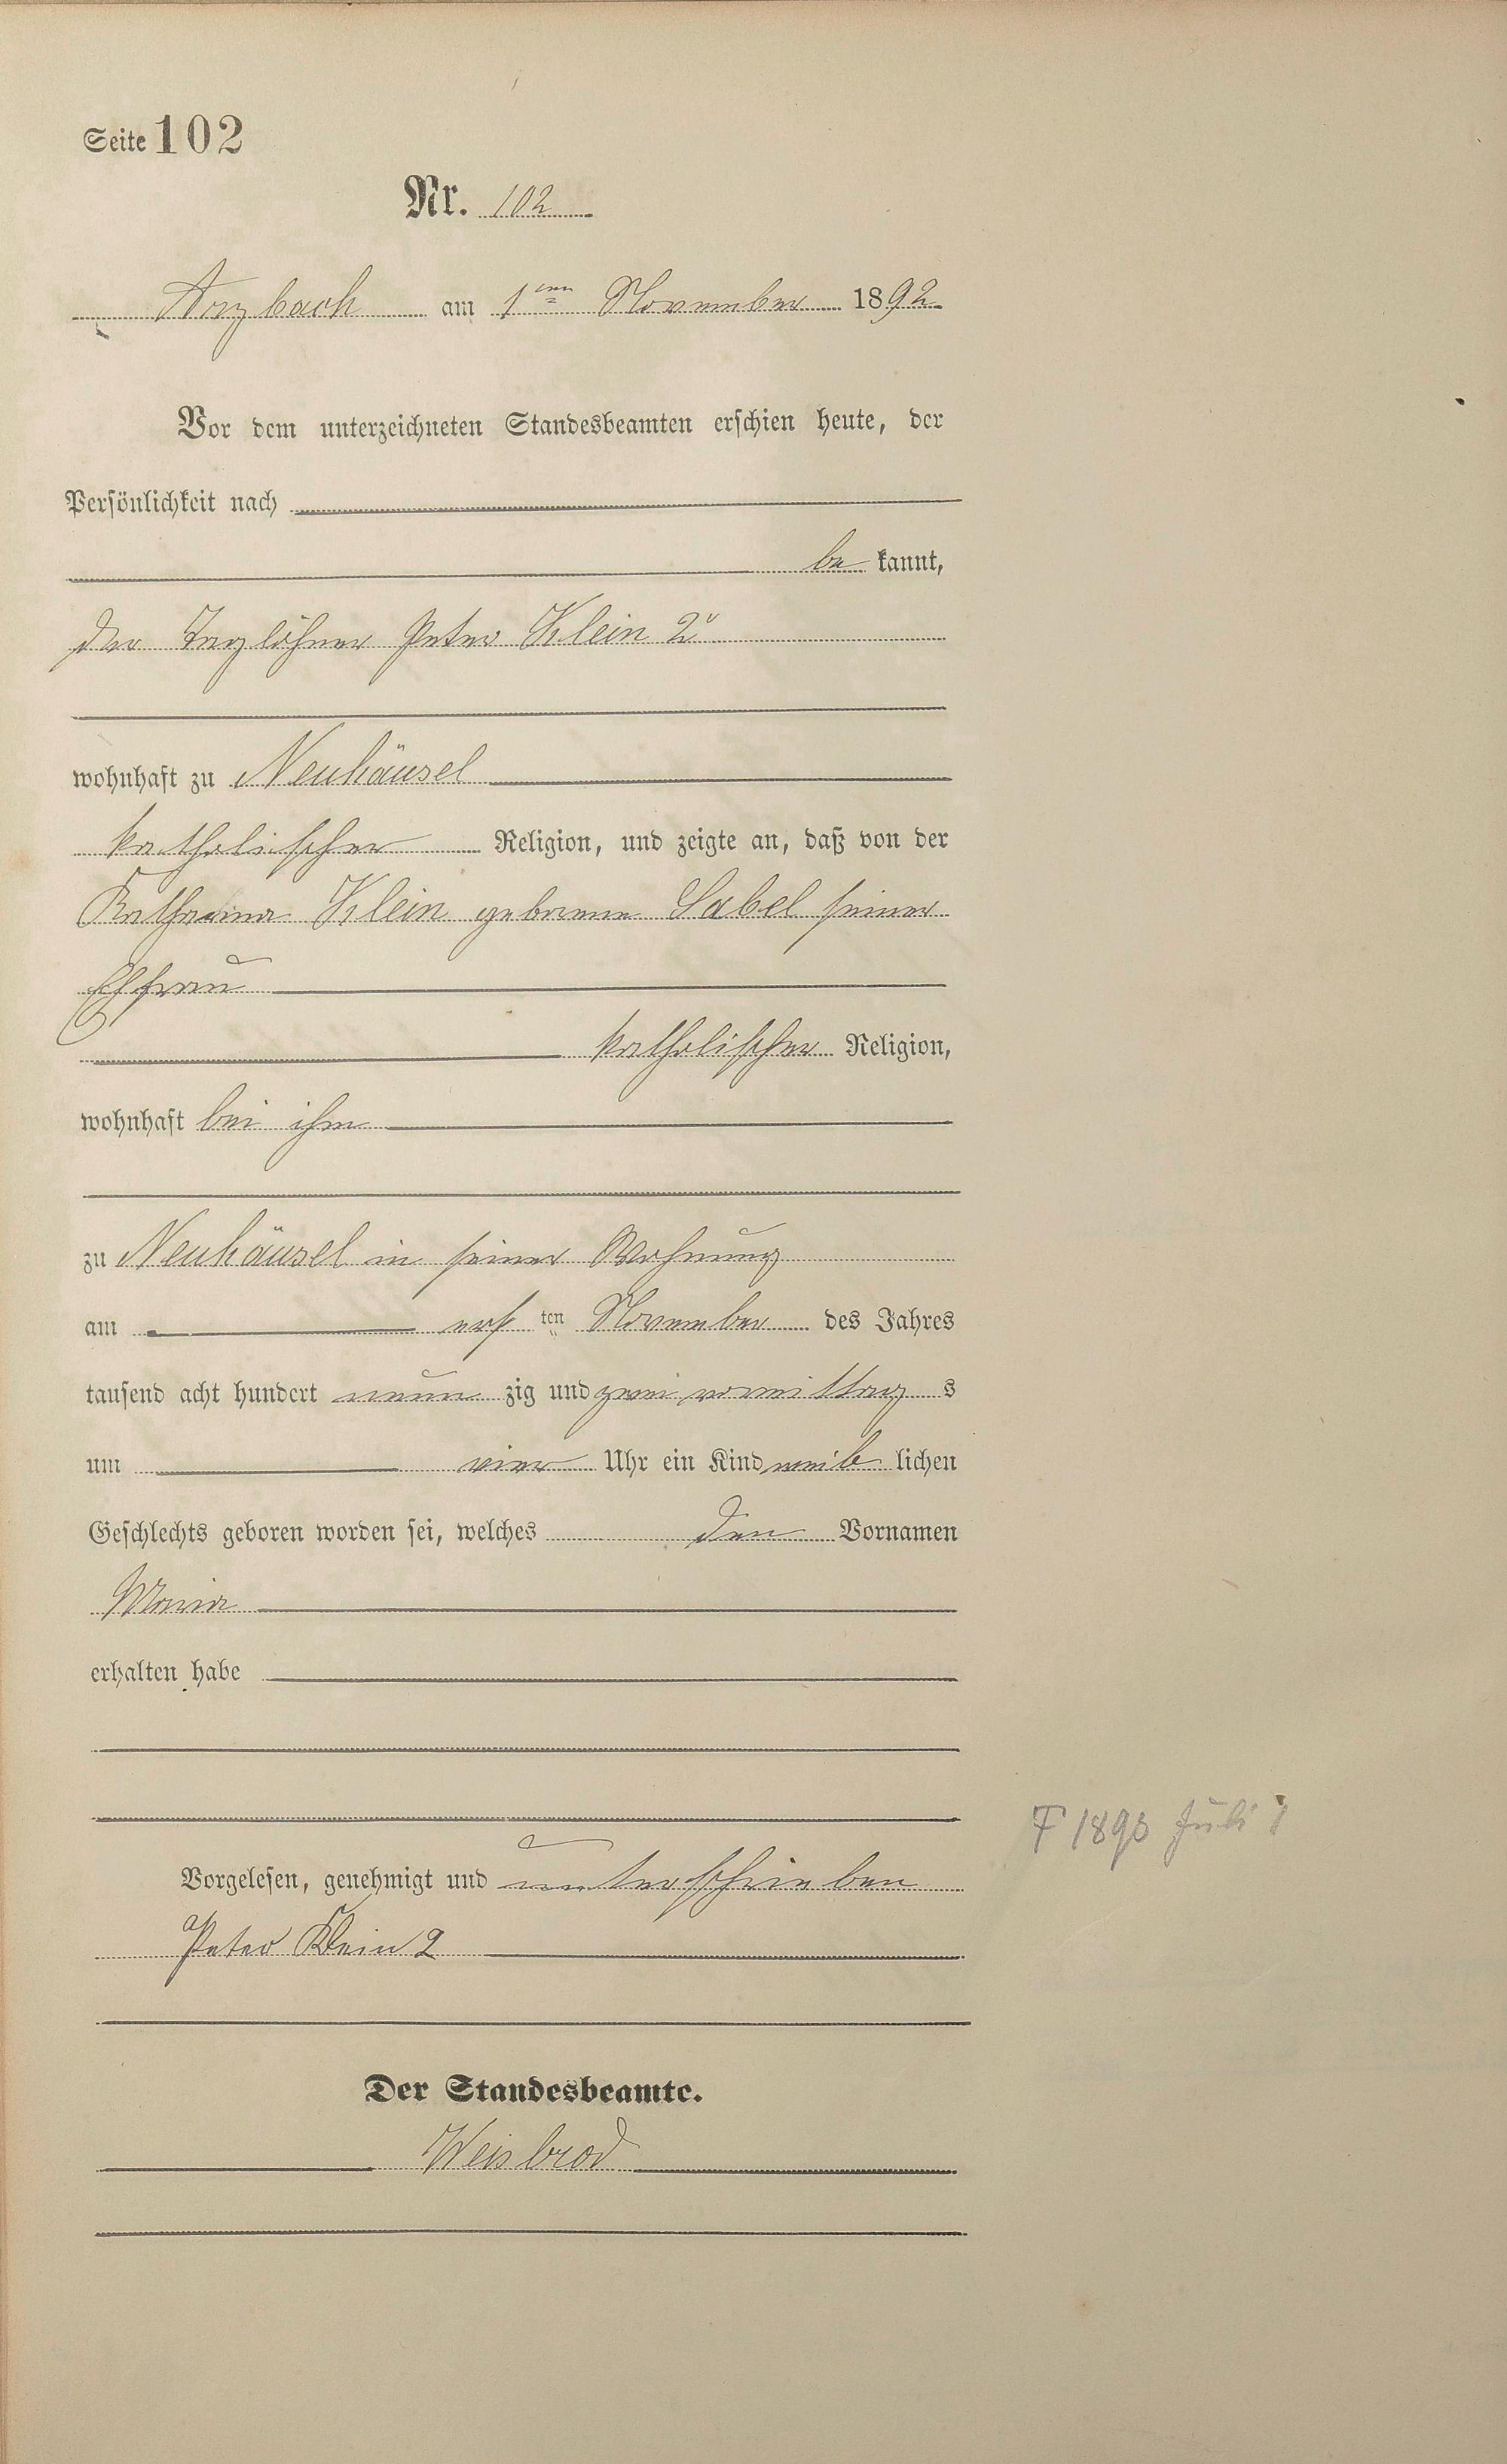 Seite 102
Nr. 102
Arzbach am 1ten November 1892
Vor dem unterzeichneten Standesbeamten erschien heute, der
Persönlichkeit nach
be kannt,
der Taglöhner Peter Klein 2r
wohnhaft zu Neuhäusel
katholischer Religion, und zeigte an, daß von der
Katharina Klein geborene Sabel seiner
Ehfrau
katholischer Religion,
wohnhaft bei ihm
zu Neuhäusel in seiner Wohnung
am erst ten November des Jahres
tausend acht hundert neun zig und zwei vormittag s
um vier Uhr ein Kind weib lichen
Geschlechts geboren worden sei, welches den Vornamen
Maria
erhalten habe
Vorgelesen, genehmigt und unterschrieben
Peter Klein 2
Der Standesbeamte.
Weisbrod
† 1893 Juli